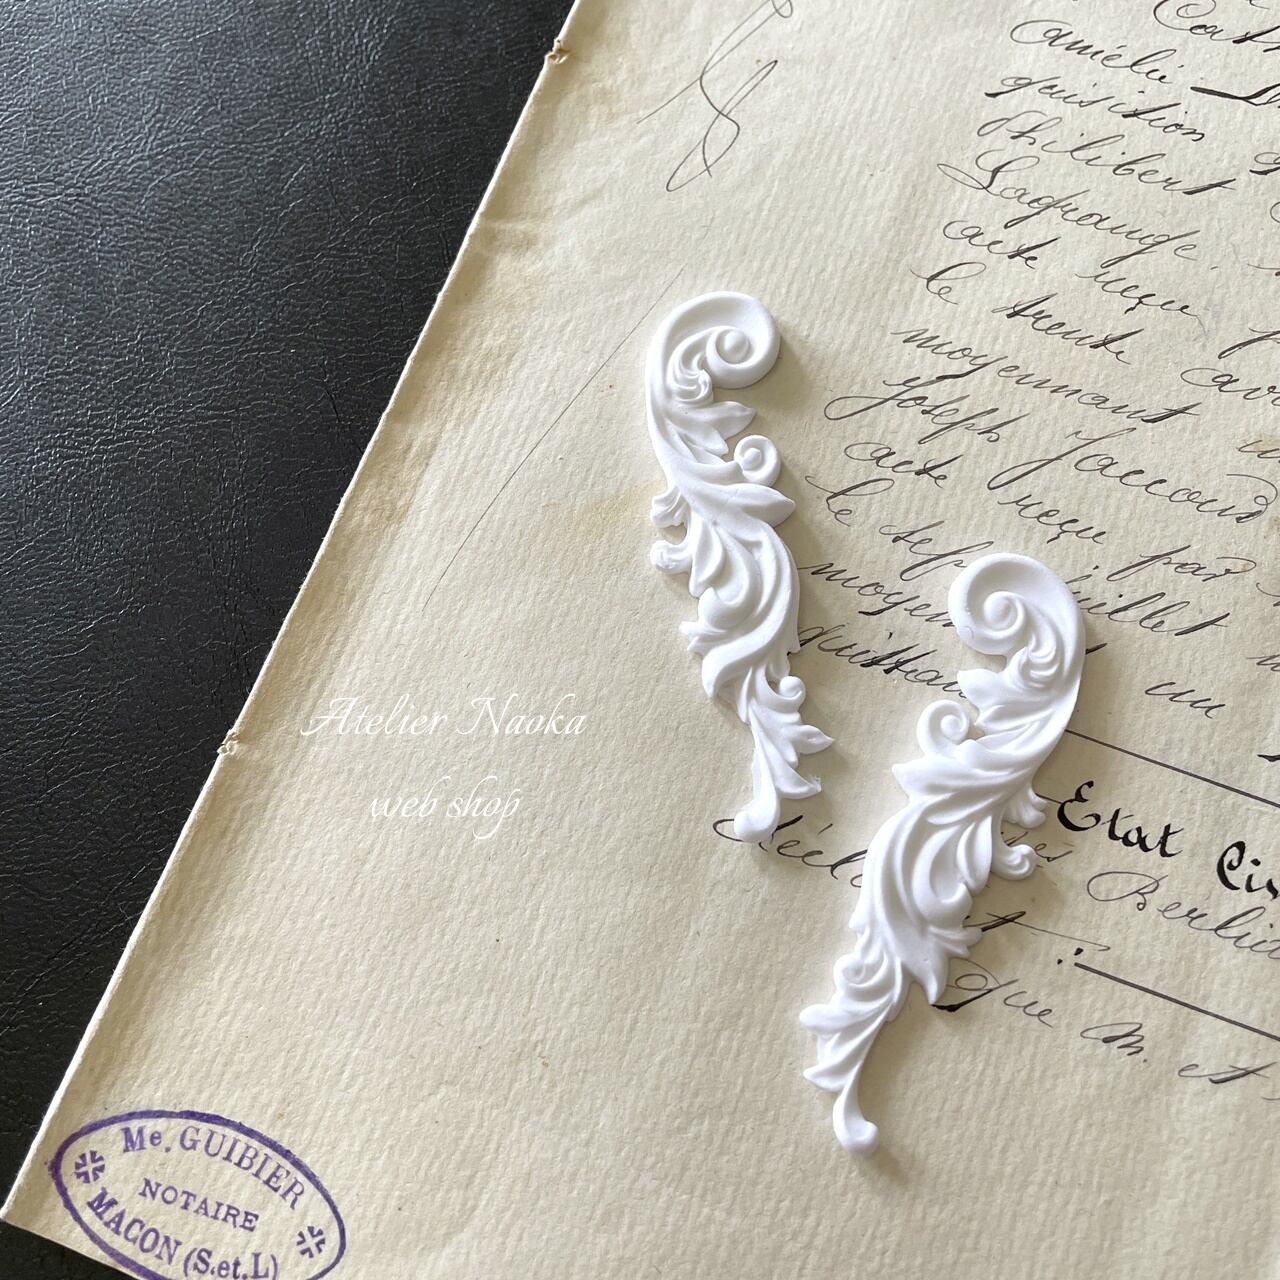 Cath
Amélie
quisition
Philibert
Lagrange.
acte reçu p
le trente avr
moyennant u
Joseph Jaccoud
acte reçu par
le sept juillet
moyen un
quittan
Etat Civ
Décl des Berlin
que M. et
Atelier Naoka
web shop
Me. GUIBIER
NOTAIRE
MACON (S.et.L)